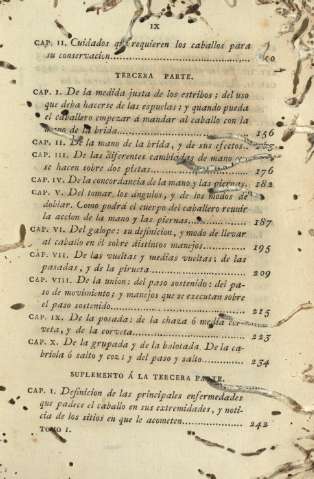 IX
CAP. II. Cuidados que requieren los caballos para
su conservacion
TERCERA PARTE.
CAP. I. De la medida justa de los estribos; del uso
que deba hacerse de las espuelas; y quando pueda
el caballero empezar á mandar al caballo con la
mano de la brida. 156
CAP. II. De la mano de la brida, y de sus efectos.
CAP. III. De las diferentes cambiadas de mano que
se hacen sobre dos pistas. 176
CAP. IV. De la concordancia de la mano y las piernas. 182
CAP. V. Del tomar los ángulos, y de los modos de
doblar. Como podrá el cuerpo del caballero reunir
la accion de la mano y las piernas. 187
CAP. VI. Del galope: su definicion, y modo de llevar
al caballo en él sobre distintos manejos. 195
CAP. VII. De las vueltas y medias vueltas; de las
pasadas, y de la pirueta 209
CAP. VIII. De la union: del paso sostenido: del pa-
so de movimiento; y manejos que se executan sobre
el paso sostenido. 215
CAP. IX. De la posada: de la chaza ó media cor-
veta, y de la corveta. 223
CAP. X. De la grupada y de la balotada. De la ca-
briola ó salto y coz; y del paso y salto. 234
SUPLEMENTO Á LA TERCERA PARTE.
CAP. I. Definicion de las principales enfermedades
que padece el caballo en sus extremidades, y noti-
cia de los sitios en que le acometen. 242
TOMO I.